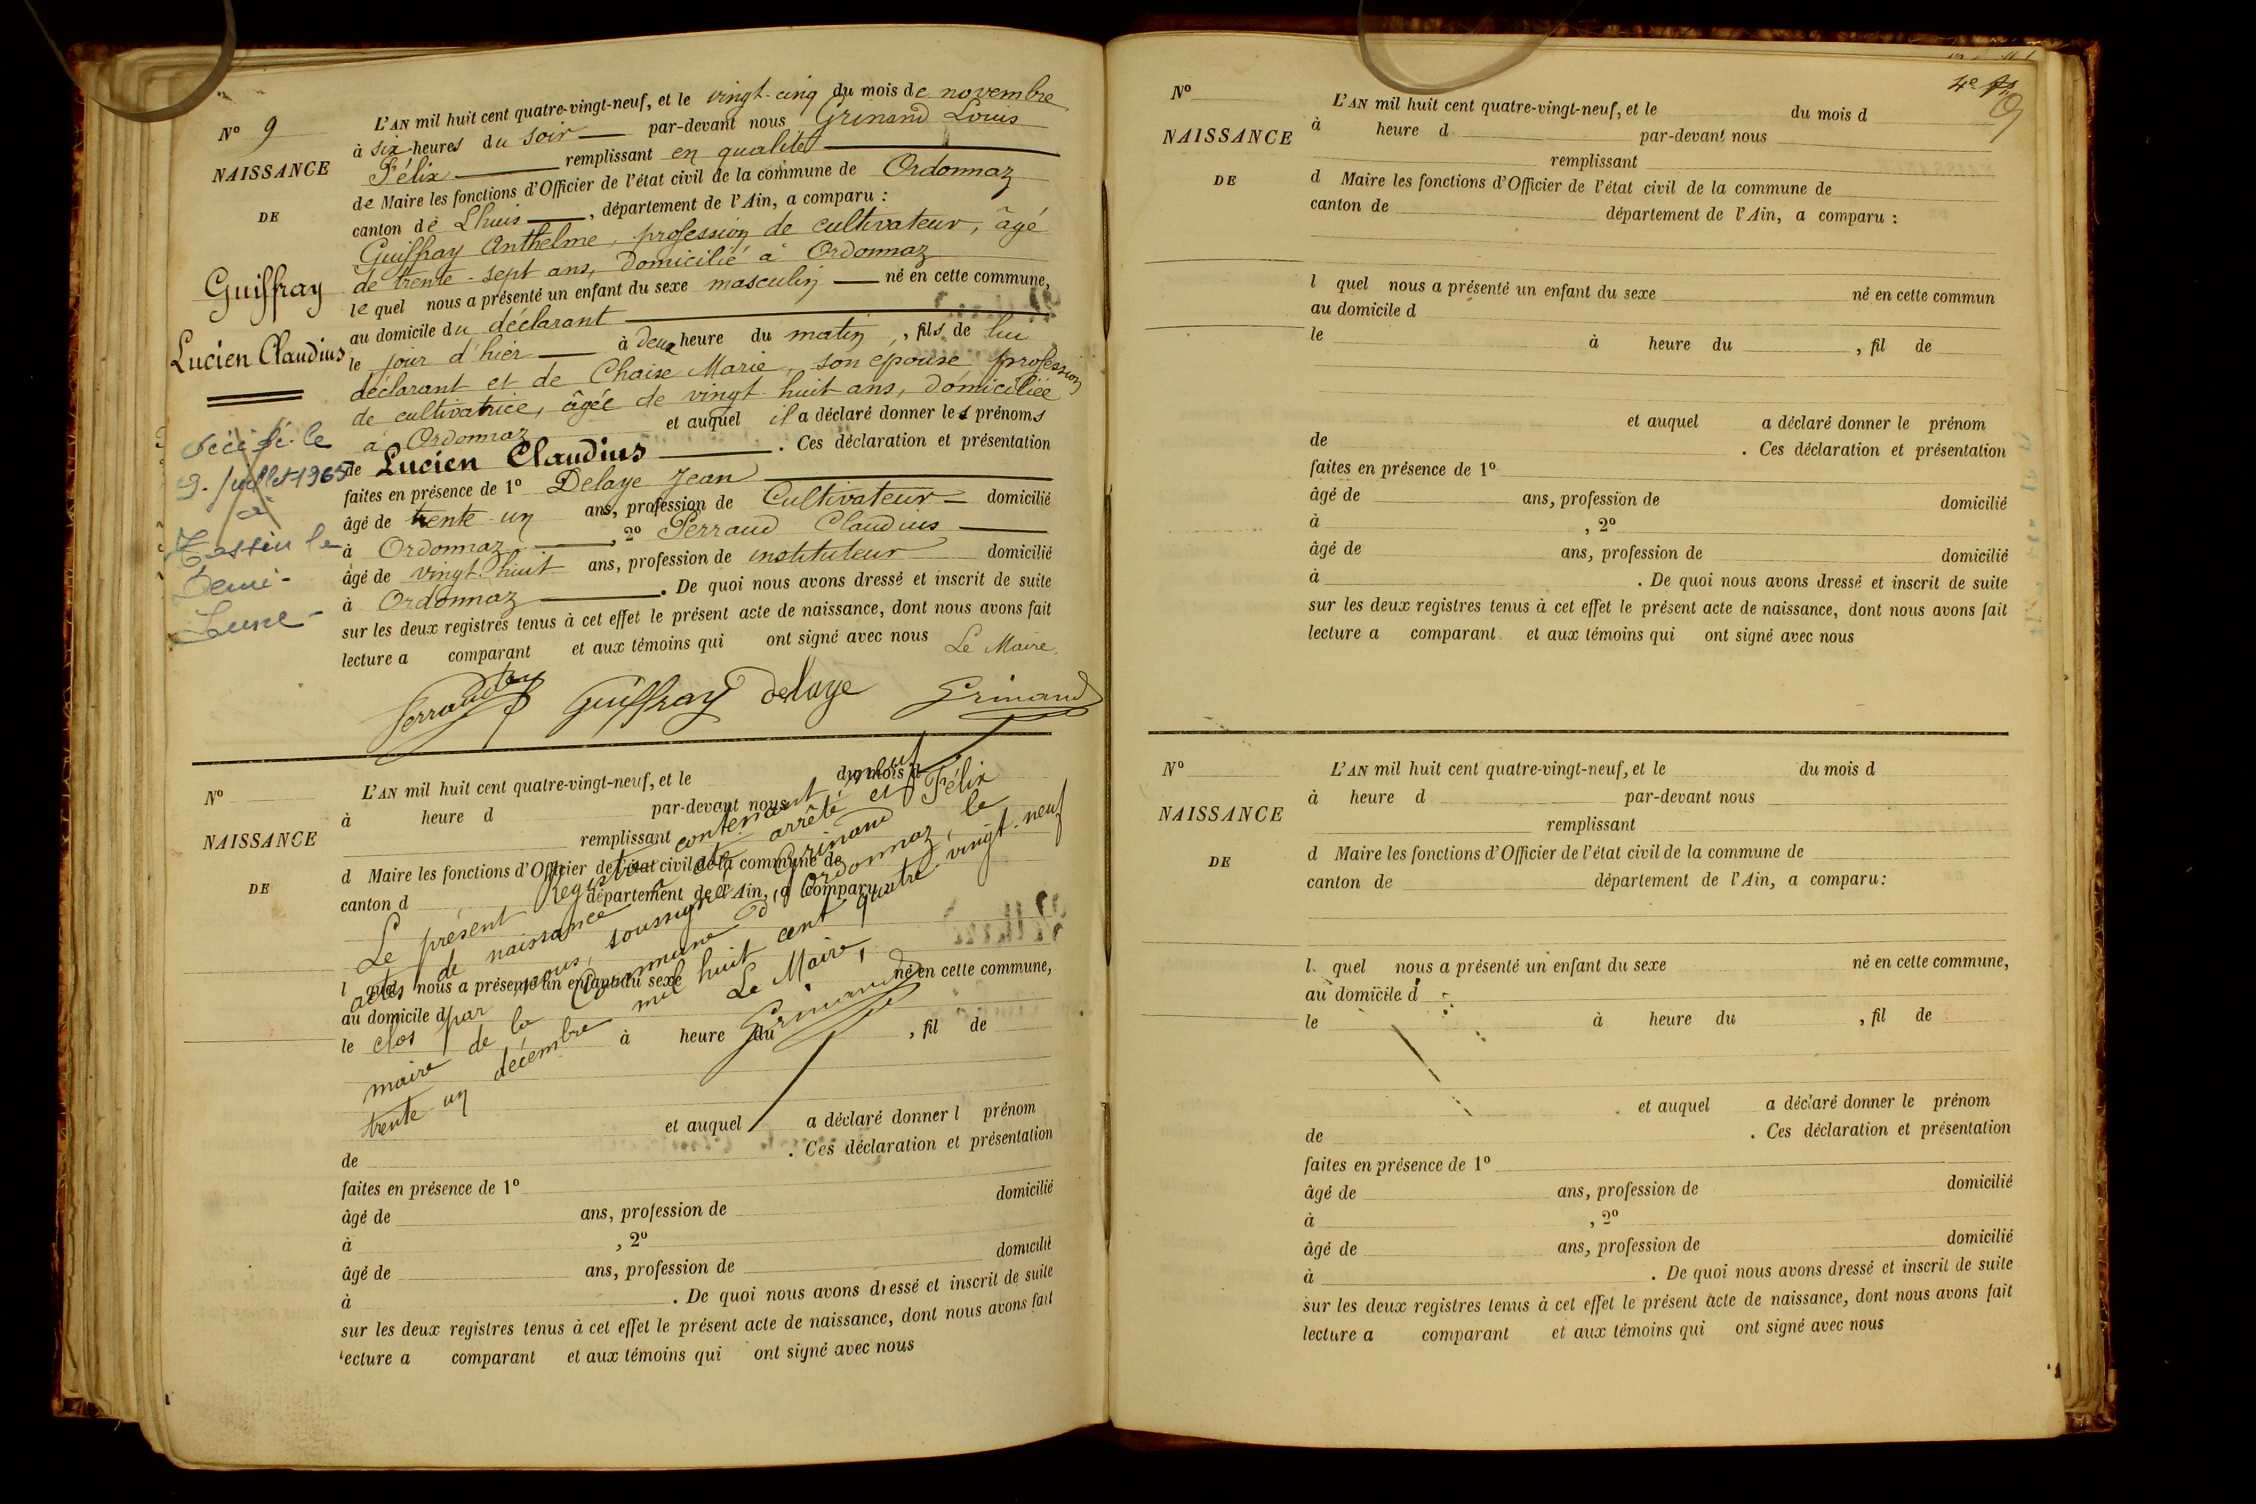 N° 9
NAISSANCE
DE
Guiffray
Lucien Claudius
Décédé le
9. Juillet 1965
à
Tassin la
Demi-
Lune-
L'AN mil huit cent quatre-vingt-neuf, et le vingt-cinq du mois de novembre
à six heures du soir par-devant nous Grinand Louis
Félix remplissant en qualité
de Maire les fonctions d'Officier de l'état civil de la commune de Ordonnaz
canton de Lhuis, département de l'Ain, a comparu :
Guiffray Anthelme, profession de cultivateur, âgé
de trente-sept ans, domicilié à Ordonnaz
le quel nous a présenté un enfant du sexe masculin né en cette commune,
au domicile du déclarant
le jour d'hier à deux heure du matin, fils de lui
déclarant et de Chaise Marie, son épouse, profession
de cultivatrice, âgée de vingt-huit ans, domiciliée
à Ordonnaz et auquel il a déclaré donner les prénoms
de Lucien Claudius. Ces déclaration et présentation
faites en présence de 1° Delaye Jean
âgé de trente-un ans, profession de Cultivateur domicilié
à Ordonnaz, 2° Perraud Claudius
âgé de vingt-huit ans, profession de instituteur domicilié
à Ordonnaz. De quoi nous avons dressé et inscrit de suite
sur les deux registres tenus à cet effet le présent acte de naissance, dont nous avons fait
lecture a comparant et aux témoins qui ont signé avec nous Le Maire,
Guiffray Delaye Grinand
N°
NAISSANCE
DE
L'AN mil huit cent quatre-vingt-neuf, et le du mois d
à heure d par-devant nous
remplissant
d Maire les fonctions d'Officier de l'état civil de la commune de
canton d département de l'Ain, a comparu
l quel nous a présenté un enfant du sexe né en cette commune,
au domicile d
le à heure du , fil de
et auquel a déclaré donner l prénom
de . Ces déclaration et présentation
faites en présence de 1°
âgé de ans, profession de domicilié
à , 2°
âgé de ans, profession de domicilié
à . De quoi nous avons dressé et inscrit de suite
sur les deux registres tenus à cet effet le présent acte de naissance, dont nous avons fait
lecture a comparant et aux témoins qui ont signé avec nous
Le présent Registre contenant neuf
actes de naissance a été arrêté et
clos par nous, soussigné Grinand Félix
maire de la Commune d'Ordonnaz, le
trente-un décembre mil huit cent quatre vingt-neuf
Le Maire,
Grinand
4e
N°
NAISSANCE
DE
L'AN mil huit cent quatre-vingt-neuf, et le du mois d
à heure d par-devant nous
remplissant
d Maire les fonctions d'Officier de l'état civil de la commune de
canton de département de l'Ain, a comparu :
l quel nous a présenté un enfant du sexe né en cette commun
au domicile d
le à heure du , fil de
et auquel a déclaré donner le prénom
de . Ces déclaration et présentation
faites en présence de 1°
âgé de ans, profession de domicilié
à , 2°
âgé de ans, profession de domicilié
à . De quoi nous avons dressé et inscrit de suite
sur les deux registres tenus à cet effet le présent acte de naissance, dont nous avons fait
lecture a comparant et aux témoins qui ont signé avec nous
N°
NAISSANCE
DE
L'AN mil huit cent quatre-vingt-neuf, et le du mois d
à heure d par-devant nous
remplissant
d Maire les fonctions d'Officier de l'état civil de la commune de
canton de département de l'Ain, a comparu :
l quel nous a présenté un enfant du sexe né en cette commune,
au domicile d
le à heure du , fil de
et auquel a déclaré donner le prénom
de . Ces déclaration et présentation
faites en présence de 1°
âgé de ans, profession de domicilié
à , 2°
âgé de ans, profession de domicilié
à . De quoi nous avons dressé et inscrit de suite
sur les deux registres tenus à cet effet le présent acte de naissance, dont nous avons fait
lecture a comparant et aux témoins qui ont signé avec nous